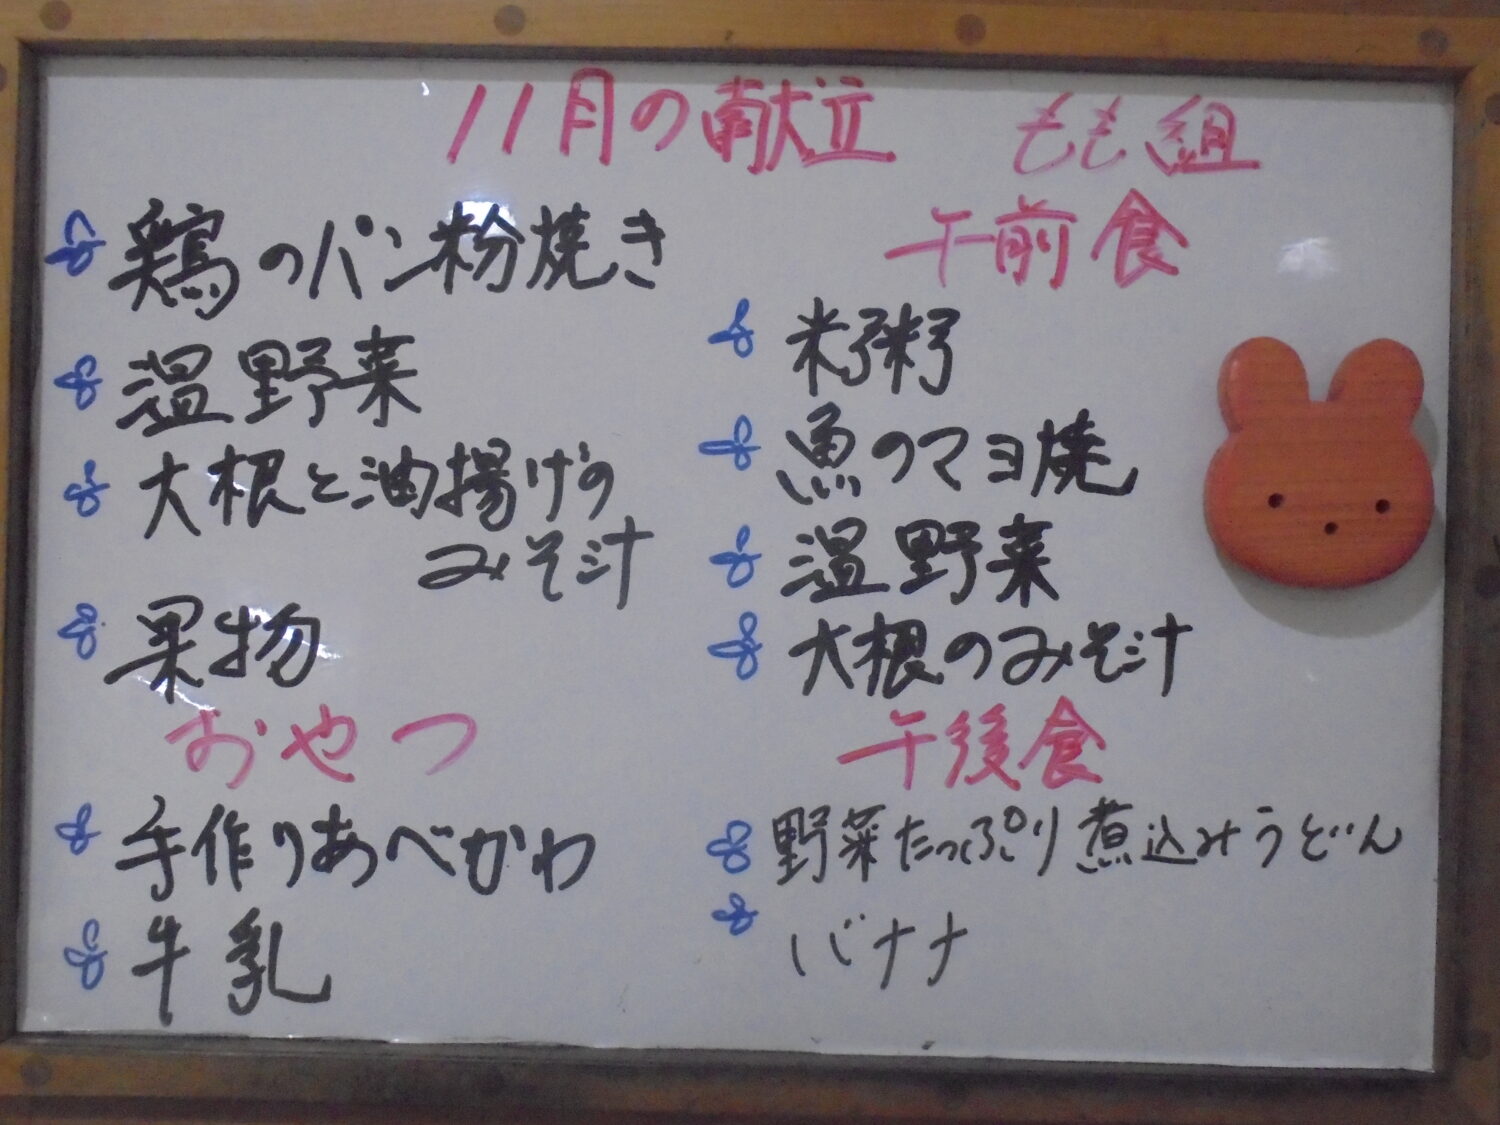 11月の献立 もも組
鶏のパン粉焼き
温野菜
大根と油揚げの
みそ汁
果物
おやつ
手作りあべかわ
牛乳
午前食
米粥
魚のマヨ焼
温野菜
大根のみそ汁
午後食
野菜たっぷり煮込みうどん
バナナ